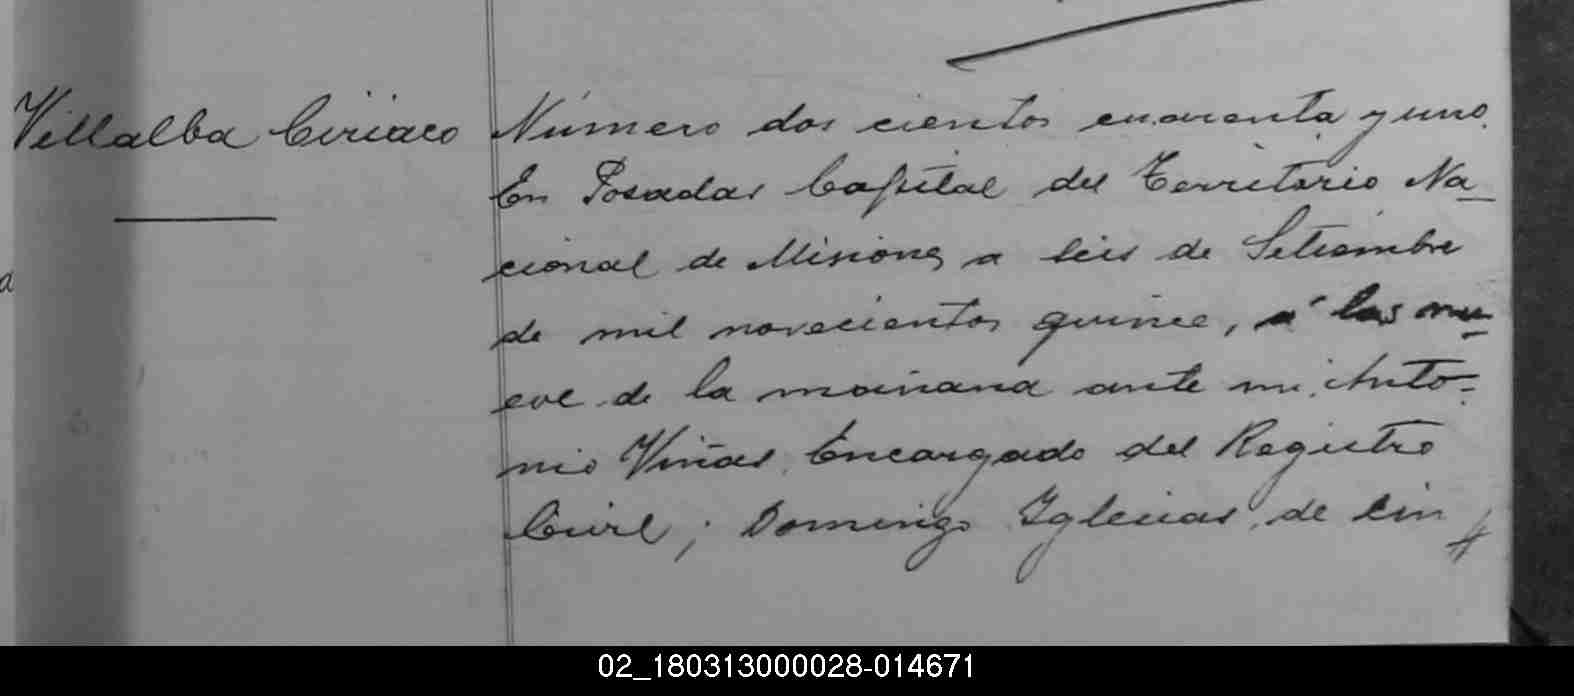 Villalba Ciriaco
Número dos cientos cuarenta y uno.
En Posadas Capital del Territorio Na_
cional de Misiones a seis de Setiembre
de mil novecientos quince, á las nu_
eve de la mañana ante mi, Anto-
nio Viñas, Encargado del Registro
Civil; Domingo Iglesias, de cin
a
02_180313000028-014671